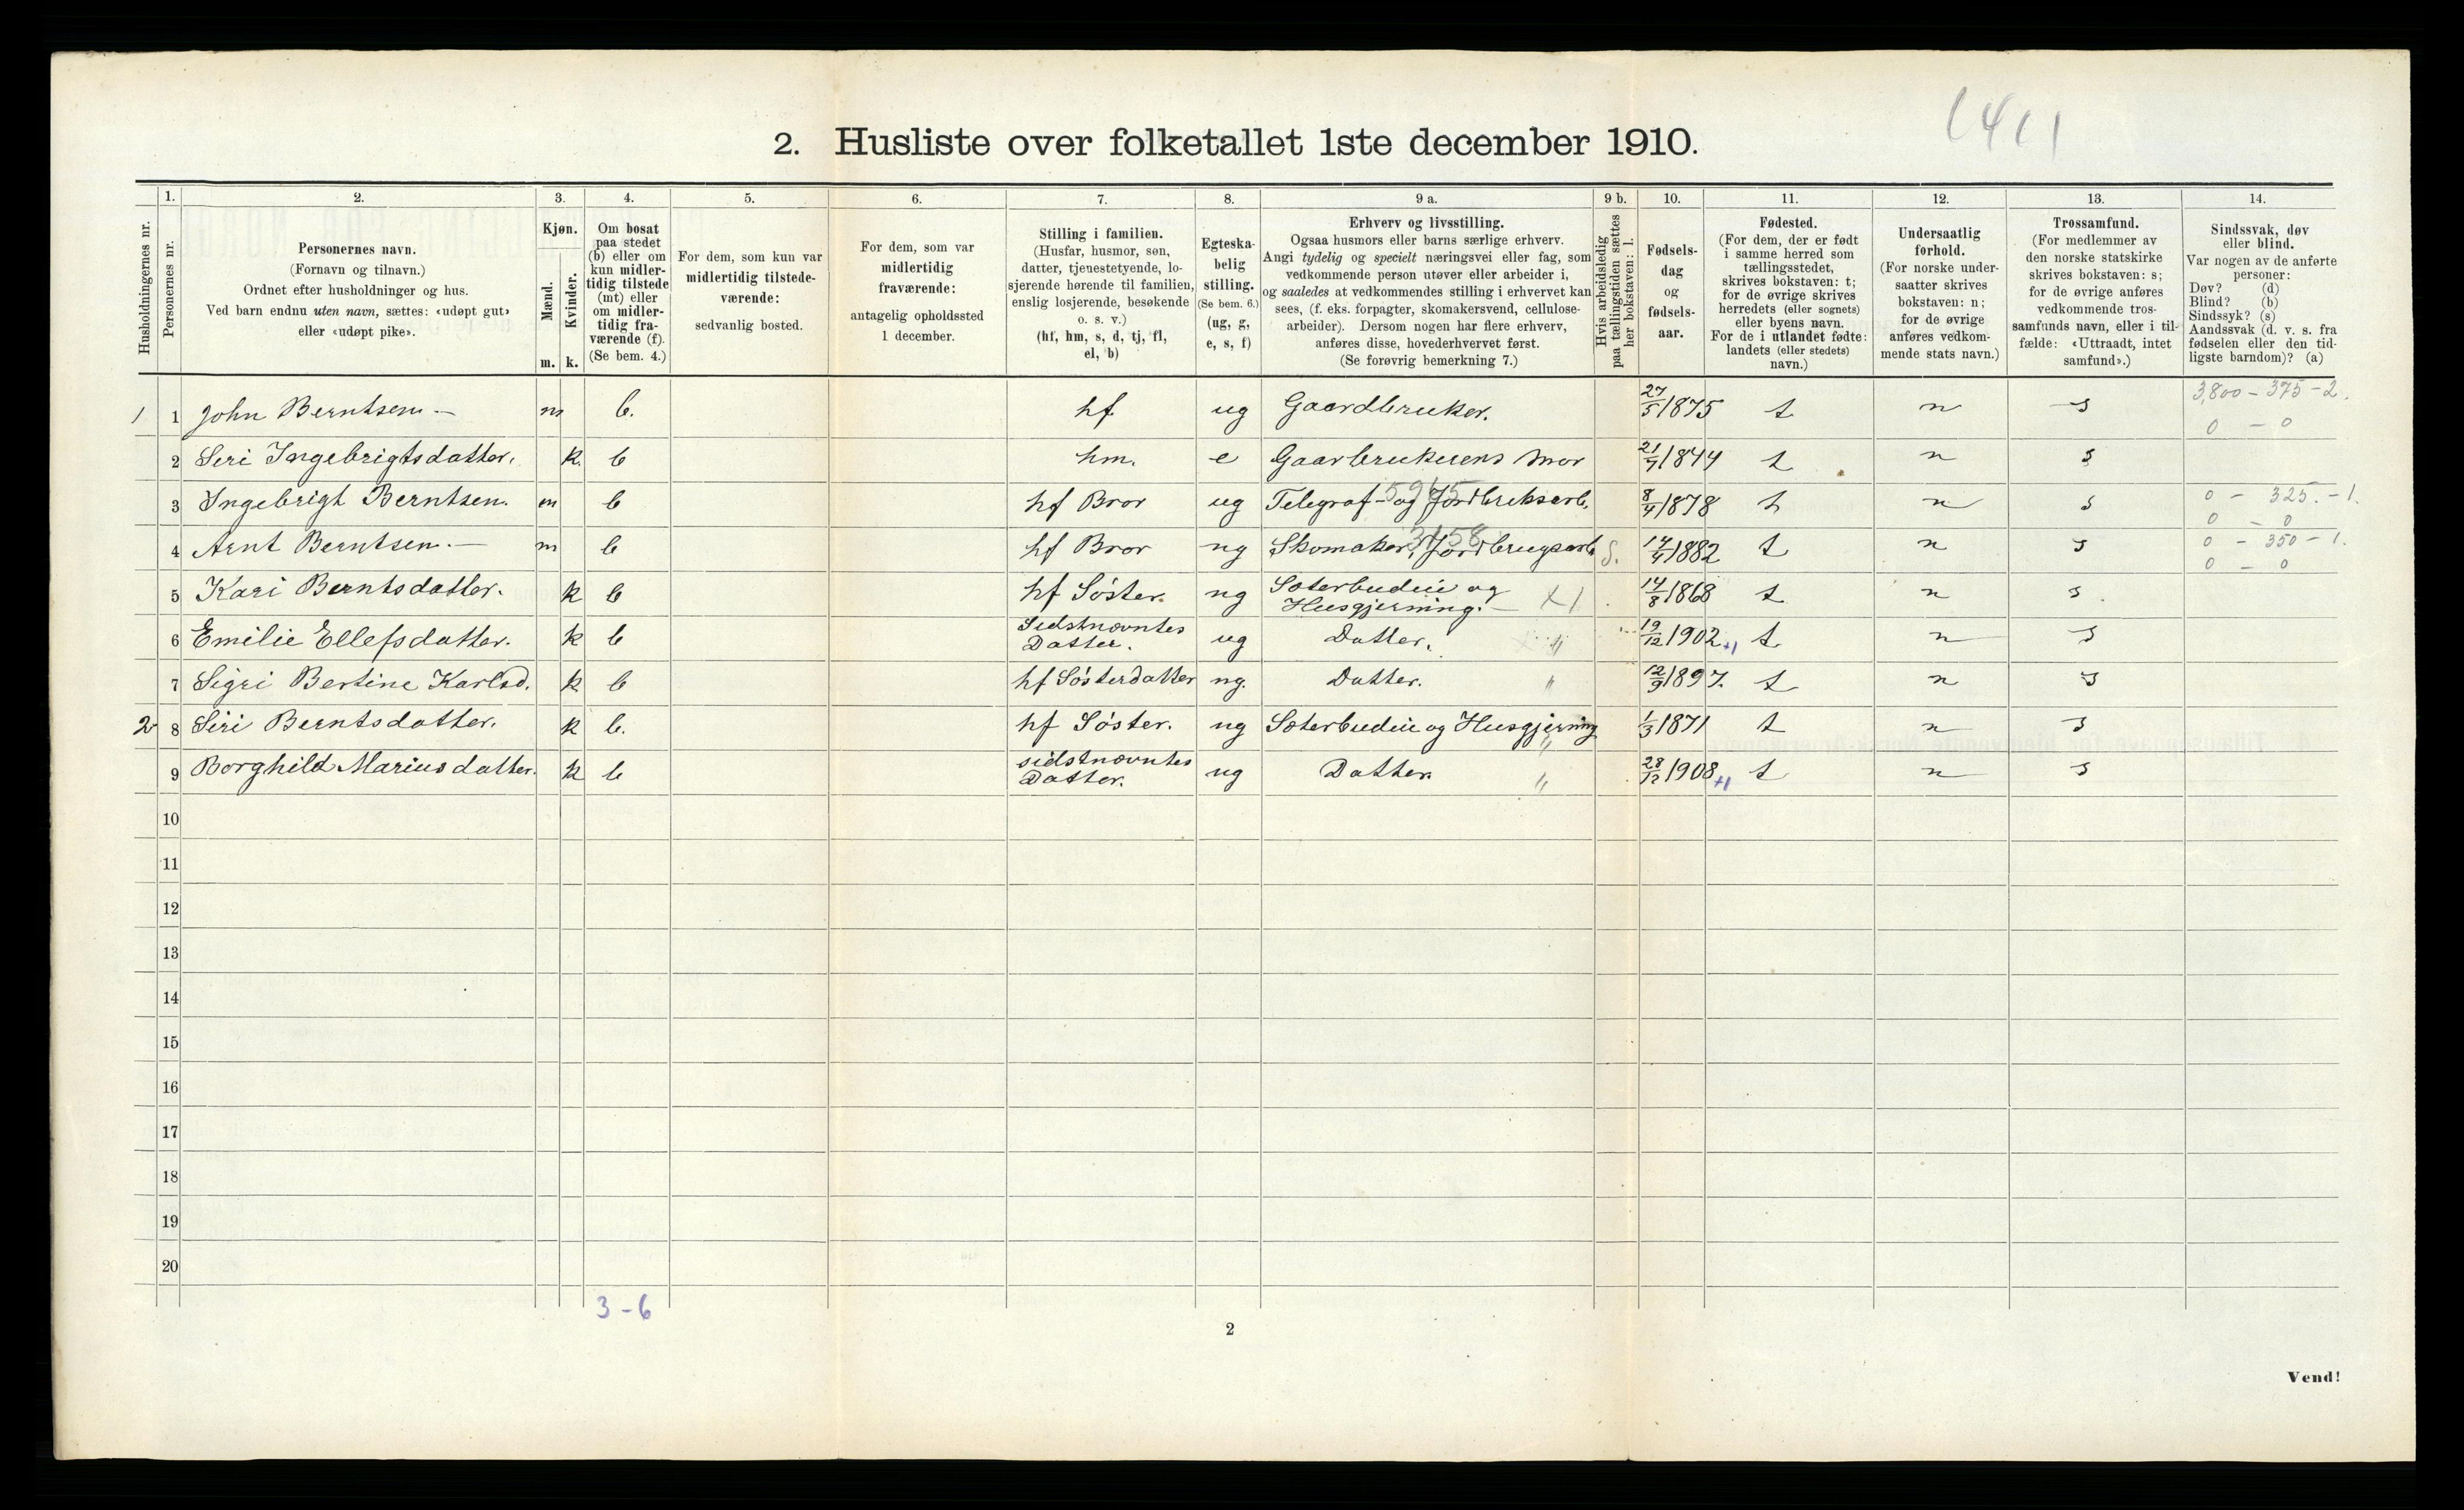 1411
2. Husliste over folketallet 1ste december 1910.
Husholdningernes nr.
1. Personernes nr.
2. Personernes navn.
(Fornavn og tilnavn.)
Ordnet efter husholdninger og hus.
Ved barn endnu uten navn, sættes: «udøpt gut»
eller «udøpt pike».
3. Kjøn.
Mænd. m.
Kvinder. k.
4. Om bosat
paa stedet
(b) eller om
kun midler-
tidig tilstede
(mt) eller
om midler-
tidig fra-
værende (f).
(Se bem. 4.)
5. For dem, som kun var
midlertidig tilstede-
værende:
sedvanlig bosted.
6. For dem, som var
midlertidig
fraværende:
antagelig opholdssted
1 december.
7. Stilling i familien.
(Husfar, husmor, søn,
datter, tjenestetyende, lo-
sjerende hørende til familien,
enslig losjerende, besøkende
o. s. v.)
(hf, hm, s, d, tj, fl,
el, b)
8. Egteska-
belig
stilling.
(Se bem. 6.)
(ug, g,
e, s, f)
9 a. Erhverv og livsstilling.
Ogsaa husmors eller barns særlige erhverv.
Angi tydelig og specielt næringsvei eller fag, som
vedkommende person utøver eller arbeider i,
og saaledes at vedkommendes stilling i erhvervet kan
sees, (f. eks. forpagter, skomakersvend, cellulose-
arbeider). Dersom nogen har flere erhverv,
anføres disse, hovederhvervet først.
(Se forøvrig bemerkning 7.)
9 b. Hvis arbeidsledig
paa tællingstiden sættes
her bokstaven: l.
10. Fødsels-
dag
og
fødsels-
aar.
11. Fødested.
(For dem, der er født
i samme herred som
tællingsstedet,
skrives bokstaven: t;
for de øvrige skrives
herredets (eller sognets)
eller byens navn.
For de i utlandet fødte:
landets (eller stedets)
navn.)
12. Undersaatlig
forhold.
(For norske under-
saatter skrives
bokstaven: n;
for de øvrige
anføres vedkom-
mende stats navn.)
13. Trossamfund.
(For medlemmer av
den norske statskirke
skrives bokstaven: s;
for de øvrige anføres
vedkommende tros-
samfunds navn, eller i til-
fælde: «Uttraadt, intet
samfund».)
14. Sindssvak, døv
eller blind.
Var nogen av de anførte
personer:
Døv? (d)
Blind? (b)
Sindssyk? (s)
Aandssvak (d. v. s. fra
fødselen eller den tid-
ligste barndom)? (a)
1 1 John Berntsen. — m b. hf ug Gaardbruker. 27/5 1875 t n s 3,800 – 375 – 2.
0 – 0
2 Seri Ingebrigtsdatter. k. b hm. e Gaarbrukerens mor 21/7 1844 t n s
3 Ingebrigt Berntsen. m b hf Bror ug Telegraf- og Jordbruksarb. 8/4 1878 t n s 0 – 325. – 1.
0 – 0
4 Arnt Berntsen. — m b hf Bror ug Skomaker, Jordbrugsarb. S. 14/4 1882 t n s 0 – 350 – 1.
3458
0 – 0
5 Kari Berntsdatter. k b hf Søster. ug Sæterbudeie og
Husgjerning. — X1 14/8 1868 t n s
6 Emilie Ellefsdatter. k b Sidstnævntes
Datter. ug Datter. " 19/12 1902 +1 t n s
7 Sigri Bertine Karlsd. k b hf Søsterdatter ug. Datter. " 12/9 1897. t n s
2 8 Siri Berntsdatter. k b. hf Søster. ug Sæterbudeie og Husgjerning " 1/3 1871 t n s
9 Borghild Mariusdatter. k b sidstnævntes
Datter. ug Datter " 28/12 1908 +1 t n s
10
11
12
13
14
15
16
17
18
19
20
3 – 6
2
Vend!